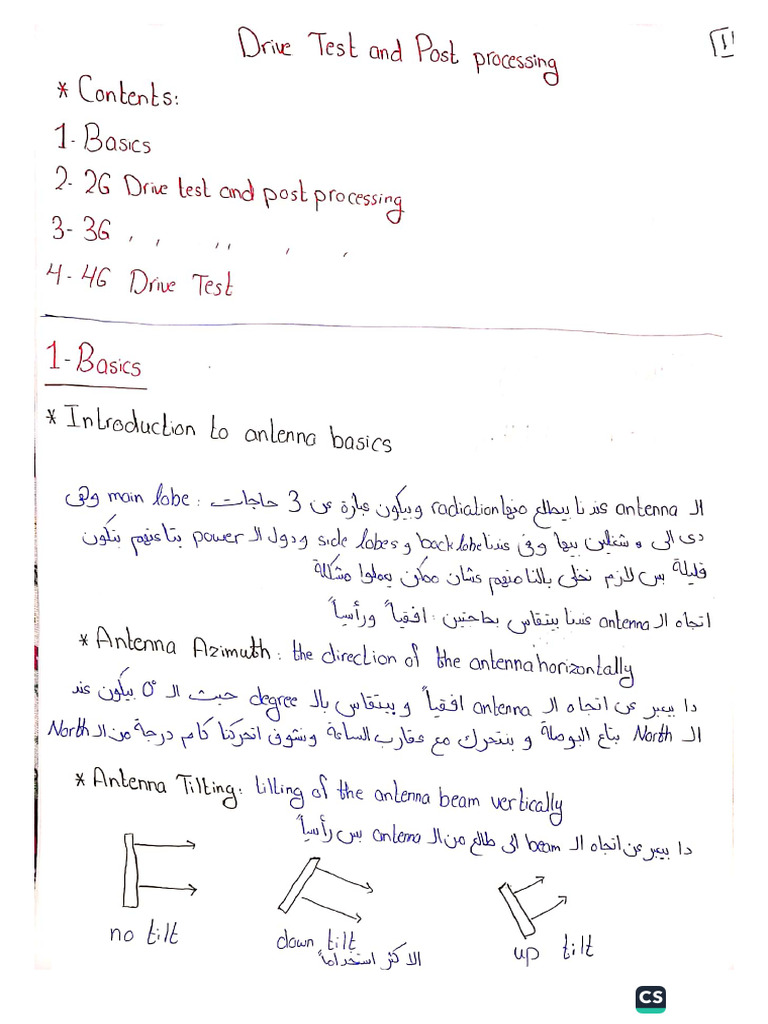 Drive Test and Post processing
1
* Contents:
1- Basics
2- 2G Drive test and post processing
3- 3G , , ,, , ,
4- 4G Drive Test
1- Basics
* Introduction to antenna basics
ال antenna عندنا بيطلع منها radiation وبيكون عبارة عن 3 حاجات : main lobe وهى
دى الى هنشتغلين بيها وفى عندنا back lobe و side lobes ودول ال power بتاعتهم بتكون
قليلة بس لازم نخلى بالنا منهم عشان ممكن يعملوا مشكلة
اتجاه ال antenna عندنا بيتقاس بحاجتين : افقياً ورأسياً
* Antenna Azimuth : the direction of the antenna horizontally
دا بيعبر عن اتجاه ال antenna افقياً و بيتقاس بال degree حيث ال 0° بيكون عند
ال North بتاع البوصلة و بنتحرك مع عقارب الساعة ونشوف اتحركنا كام درجة من ال North
* Antenna Tilting : tilting of the antenna beam vertically
دا بيعبر عن اتجاه ال beam الى طالع من ال antenna بس رأسياً
no tilt
down tilt
الاكثر استخداماً
up tilt
CS